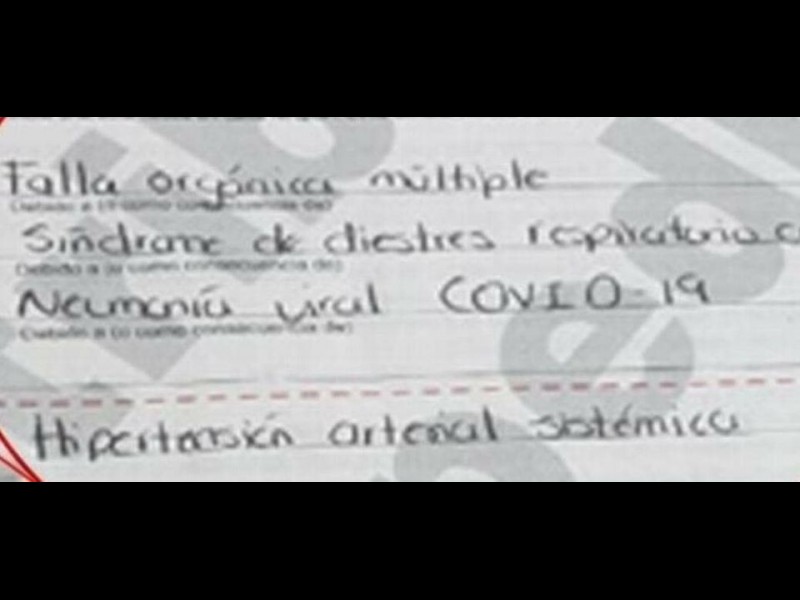 Falla orgánica múltiple
(Debido a (o como consecuencia de)
Síndrome de diestres respiratorio
(Debido a (o como consecuencia de)
Neumonía viral COVID-19
(Debido a (o como consecuencia de)
Hipertensión arterial sistémica